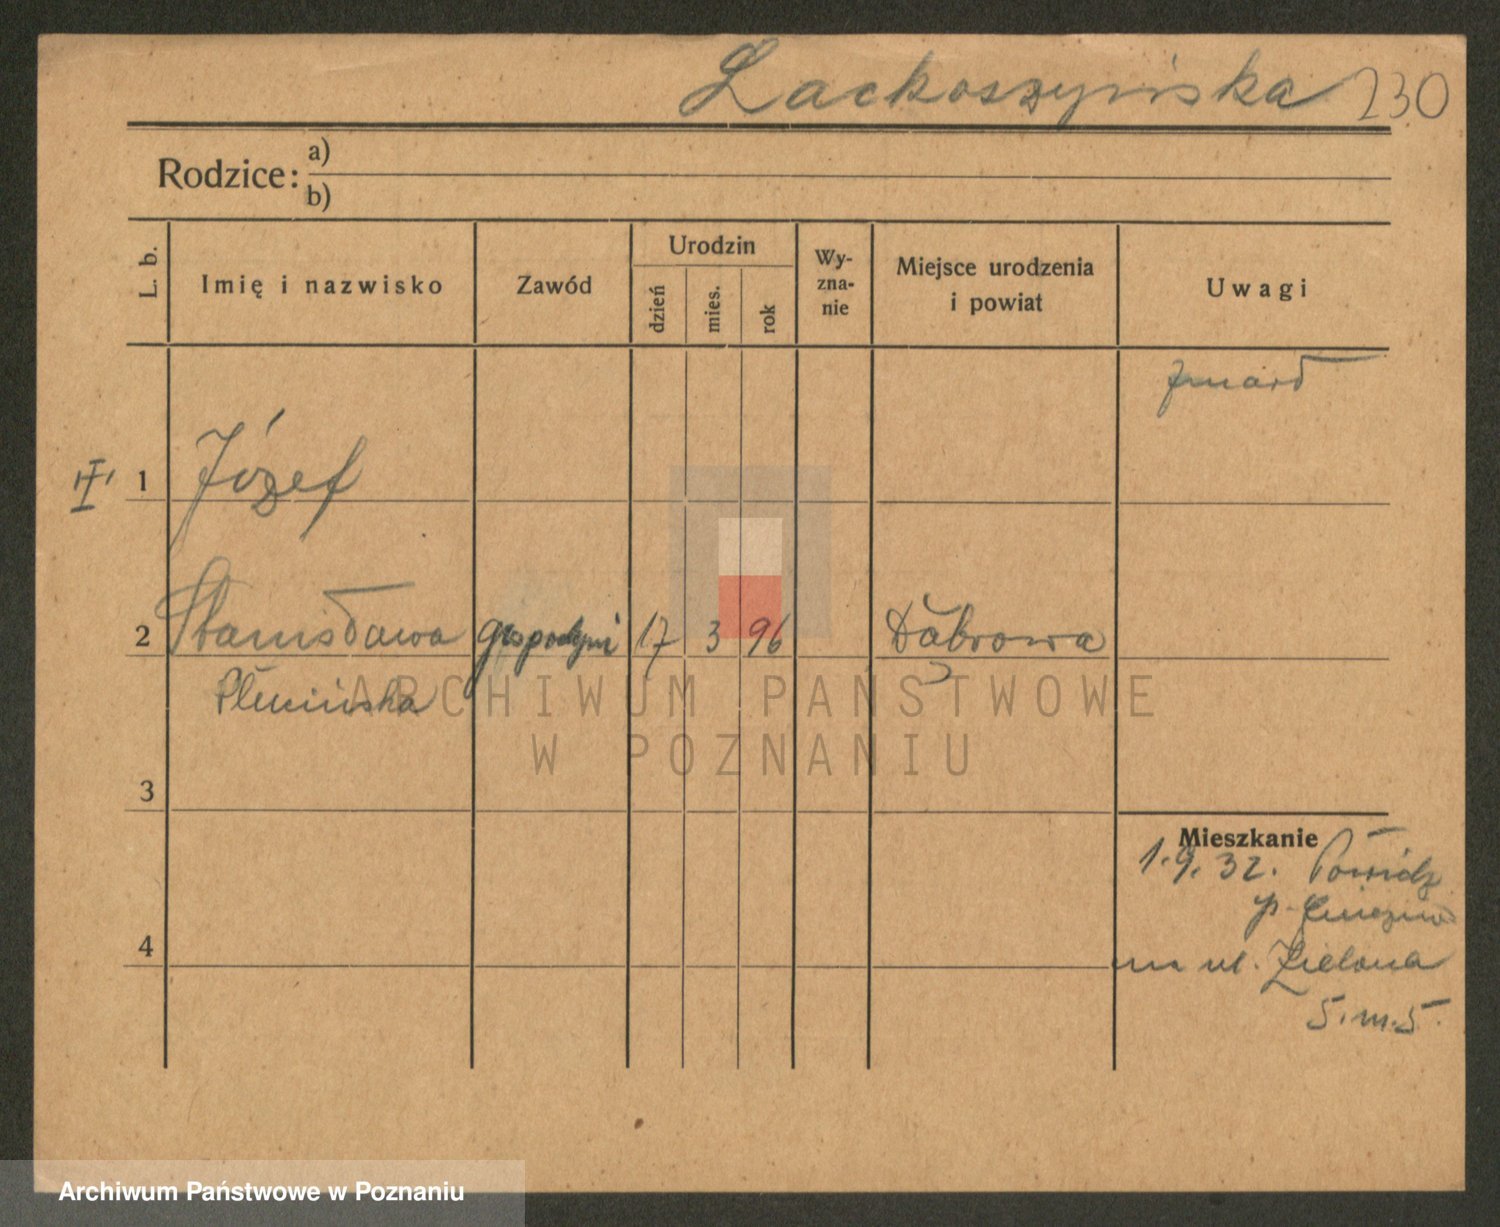 Lackoszyńska 230
Rodzice: a)
b)
L. b.
Imię i nazwisko
Zawód
Urodzin
dzień
mies.
rok
Wy-
zna-
nie
Miejsce urodzenia
i powiat
Uwagi
zmarł
1 Józef
2 Stanisława gospodyni 17 3 96 Dąbrowa
ARCHIWUM PAŃSTWOWE
W POZNANIU
3
Mieszkanie
1.9.32. Powidz
p. Gniezno
4
m ul. Zielona
5. m. 5.
Archiwum Państwowe w Poznaniu